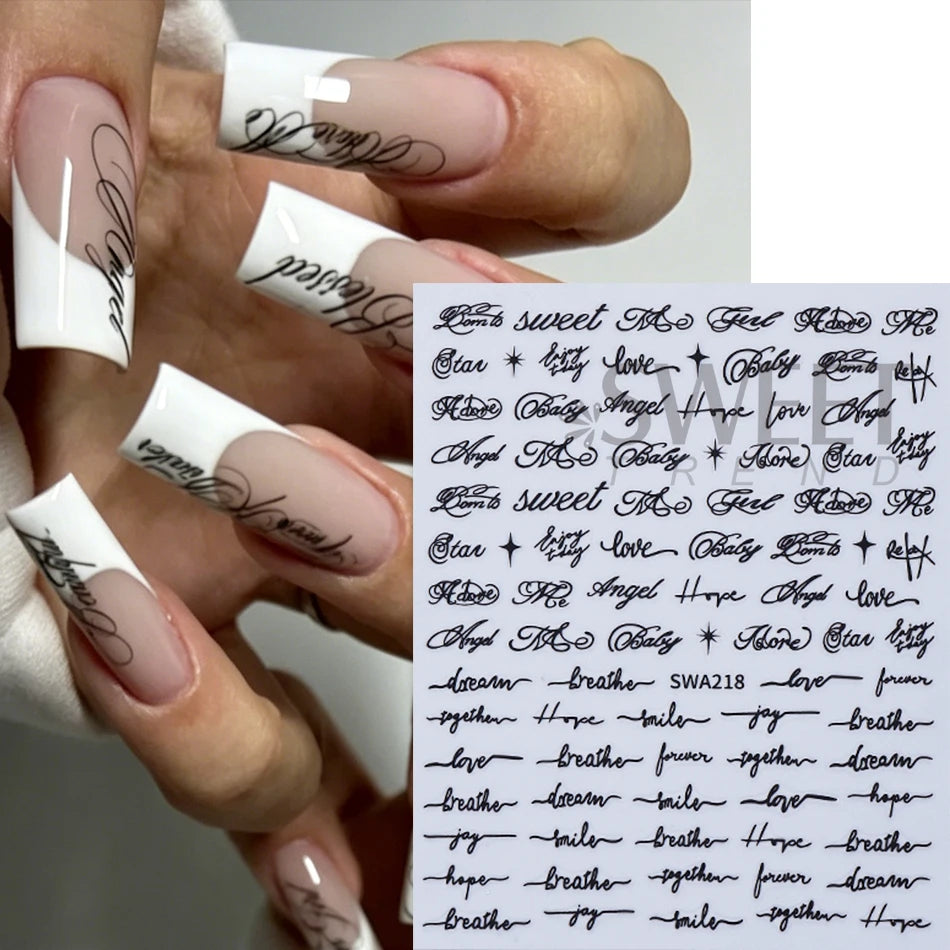 Angel
Adore Me
Blessed
Beautiful
Born to sweet Me Girl Adore Me
Star Enjoy today love Baby Born to Relax
SWEET
TREND
Adore Baby Angel Hope love Angel
Angel Me Baby Adore Star Enjoy today
Born to sweet Me Girl Adore Me
Star Enjoy today love Baby Born to Relax
Adore Me Angel Hope Angel love
Angel Me Baby Adore Star Enjoy today
dream breathe SWA218 love forever
together Hope smile joy breathe
love breathe forever together dream
breathe dream smile love hope
joy smile breathe Hope breathe
hope breathe together forever dream
breathe joy smile together Hope